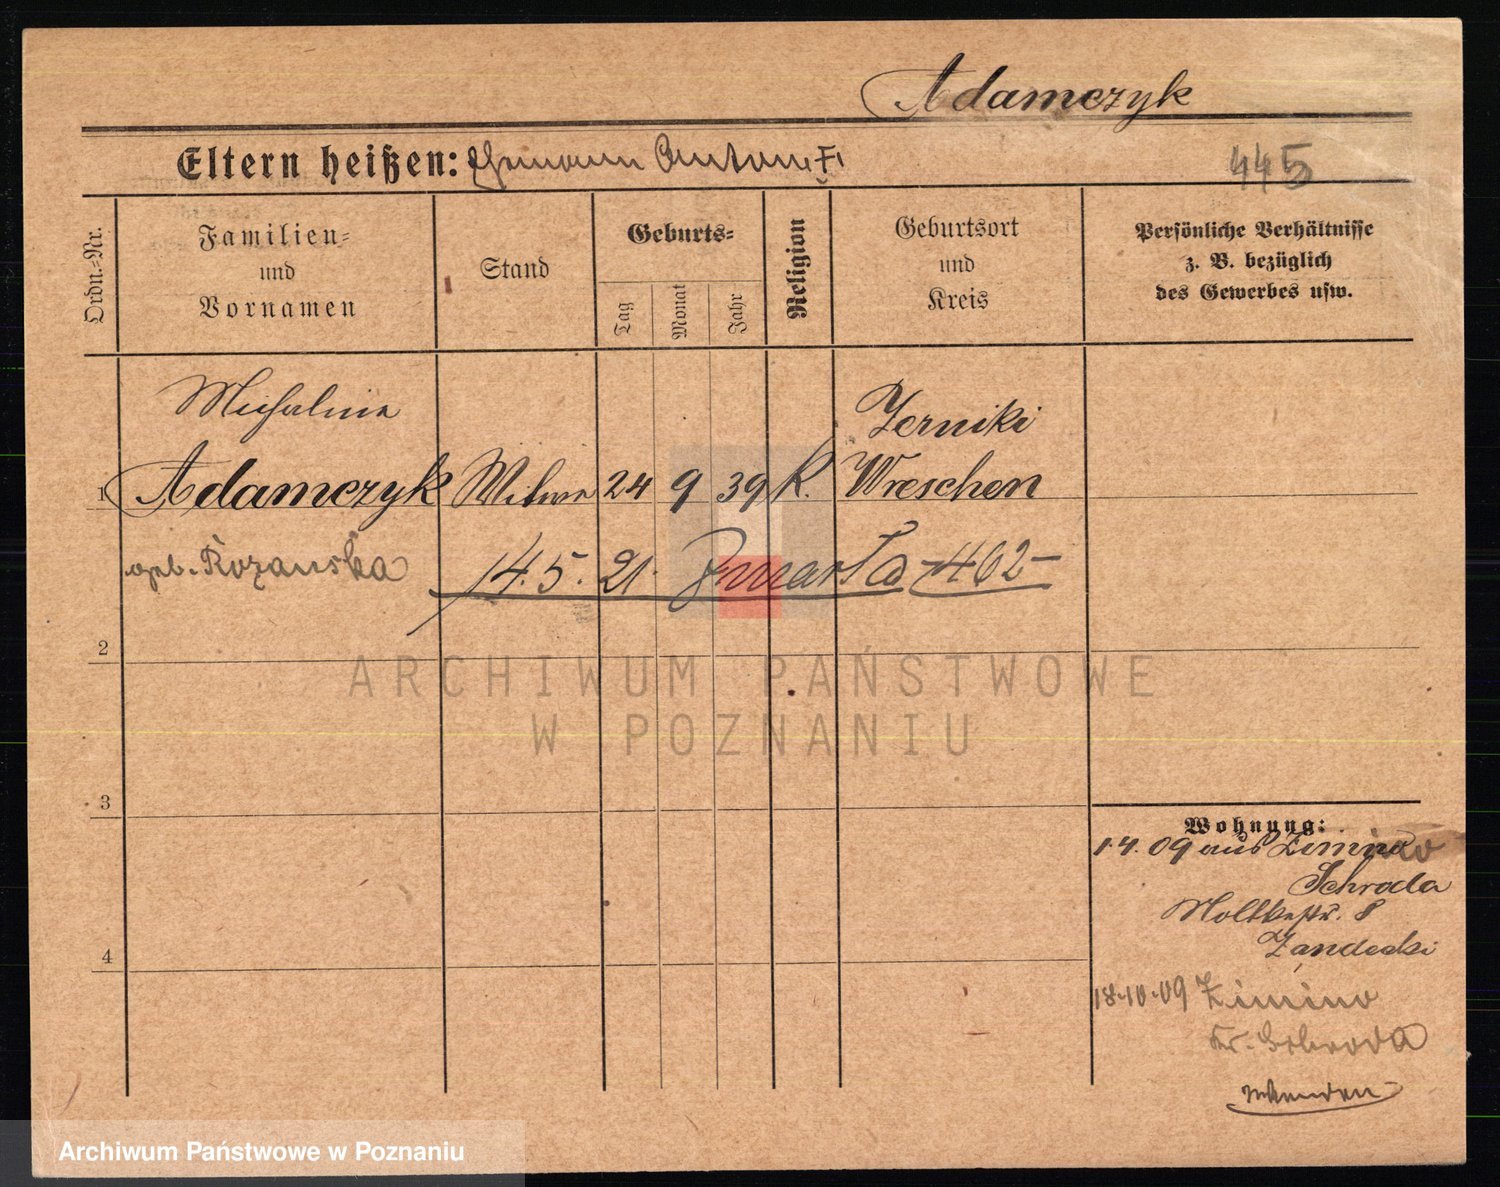 Adamczyk
Eltern heißen: Ehemann Anton †
445
Ordn.-Nr.
Familien-
und
Vornamen
Stand
Geburts-
Tag
Monat
Jahr
Religion
Geburtsort
und
Kreis
Persönliche Verhältnisse
z. B. bezüglich
des Gewerbes usw.
Michalina
Zerniki
1 Adamczyk Witwe 24 9 39 K. Wreschen
geb. Rozanska 14.5.21. Zmarła 462
2
ARCHIWUM PAŃSTWOWE
W POZNANIU
3
Wohnung:
1.4.09 aus Zimino
Schroda
Moltkestr. 8
Zandecki
4
18.10.09 Zimino
Kr. Schroda
wenden
Archiwum Państwowe w Poznaniu